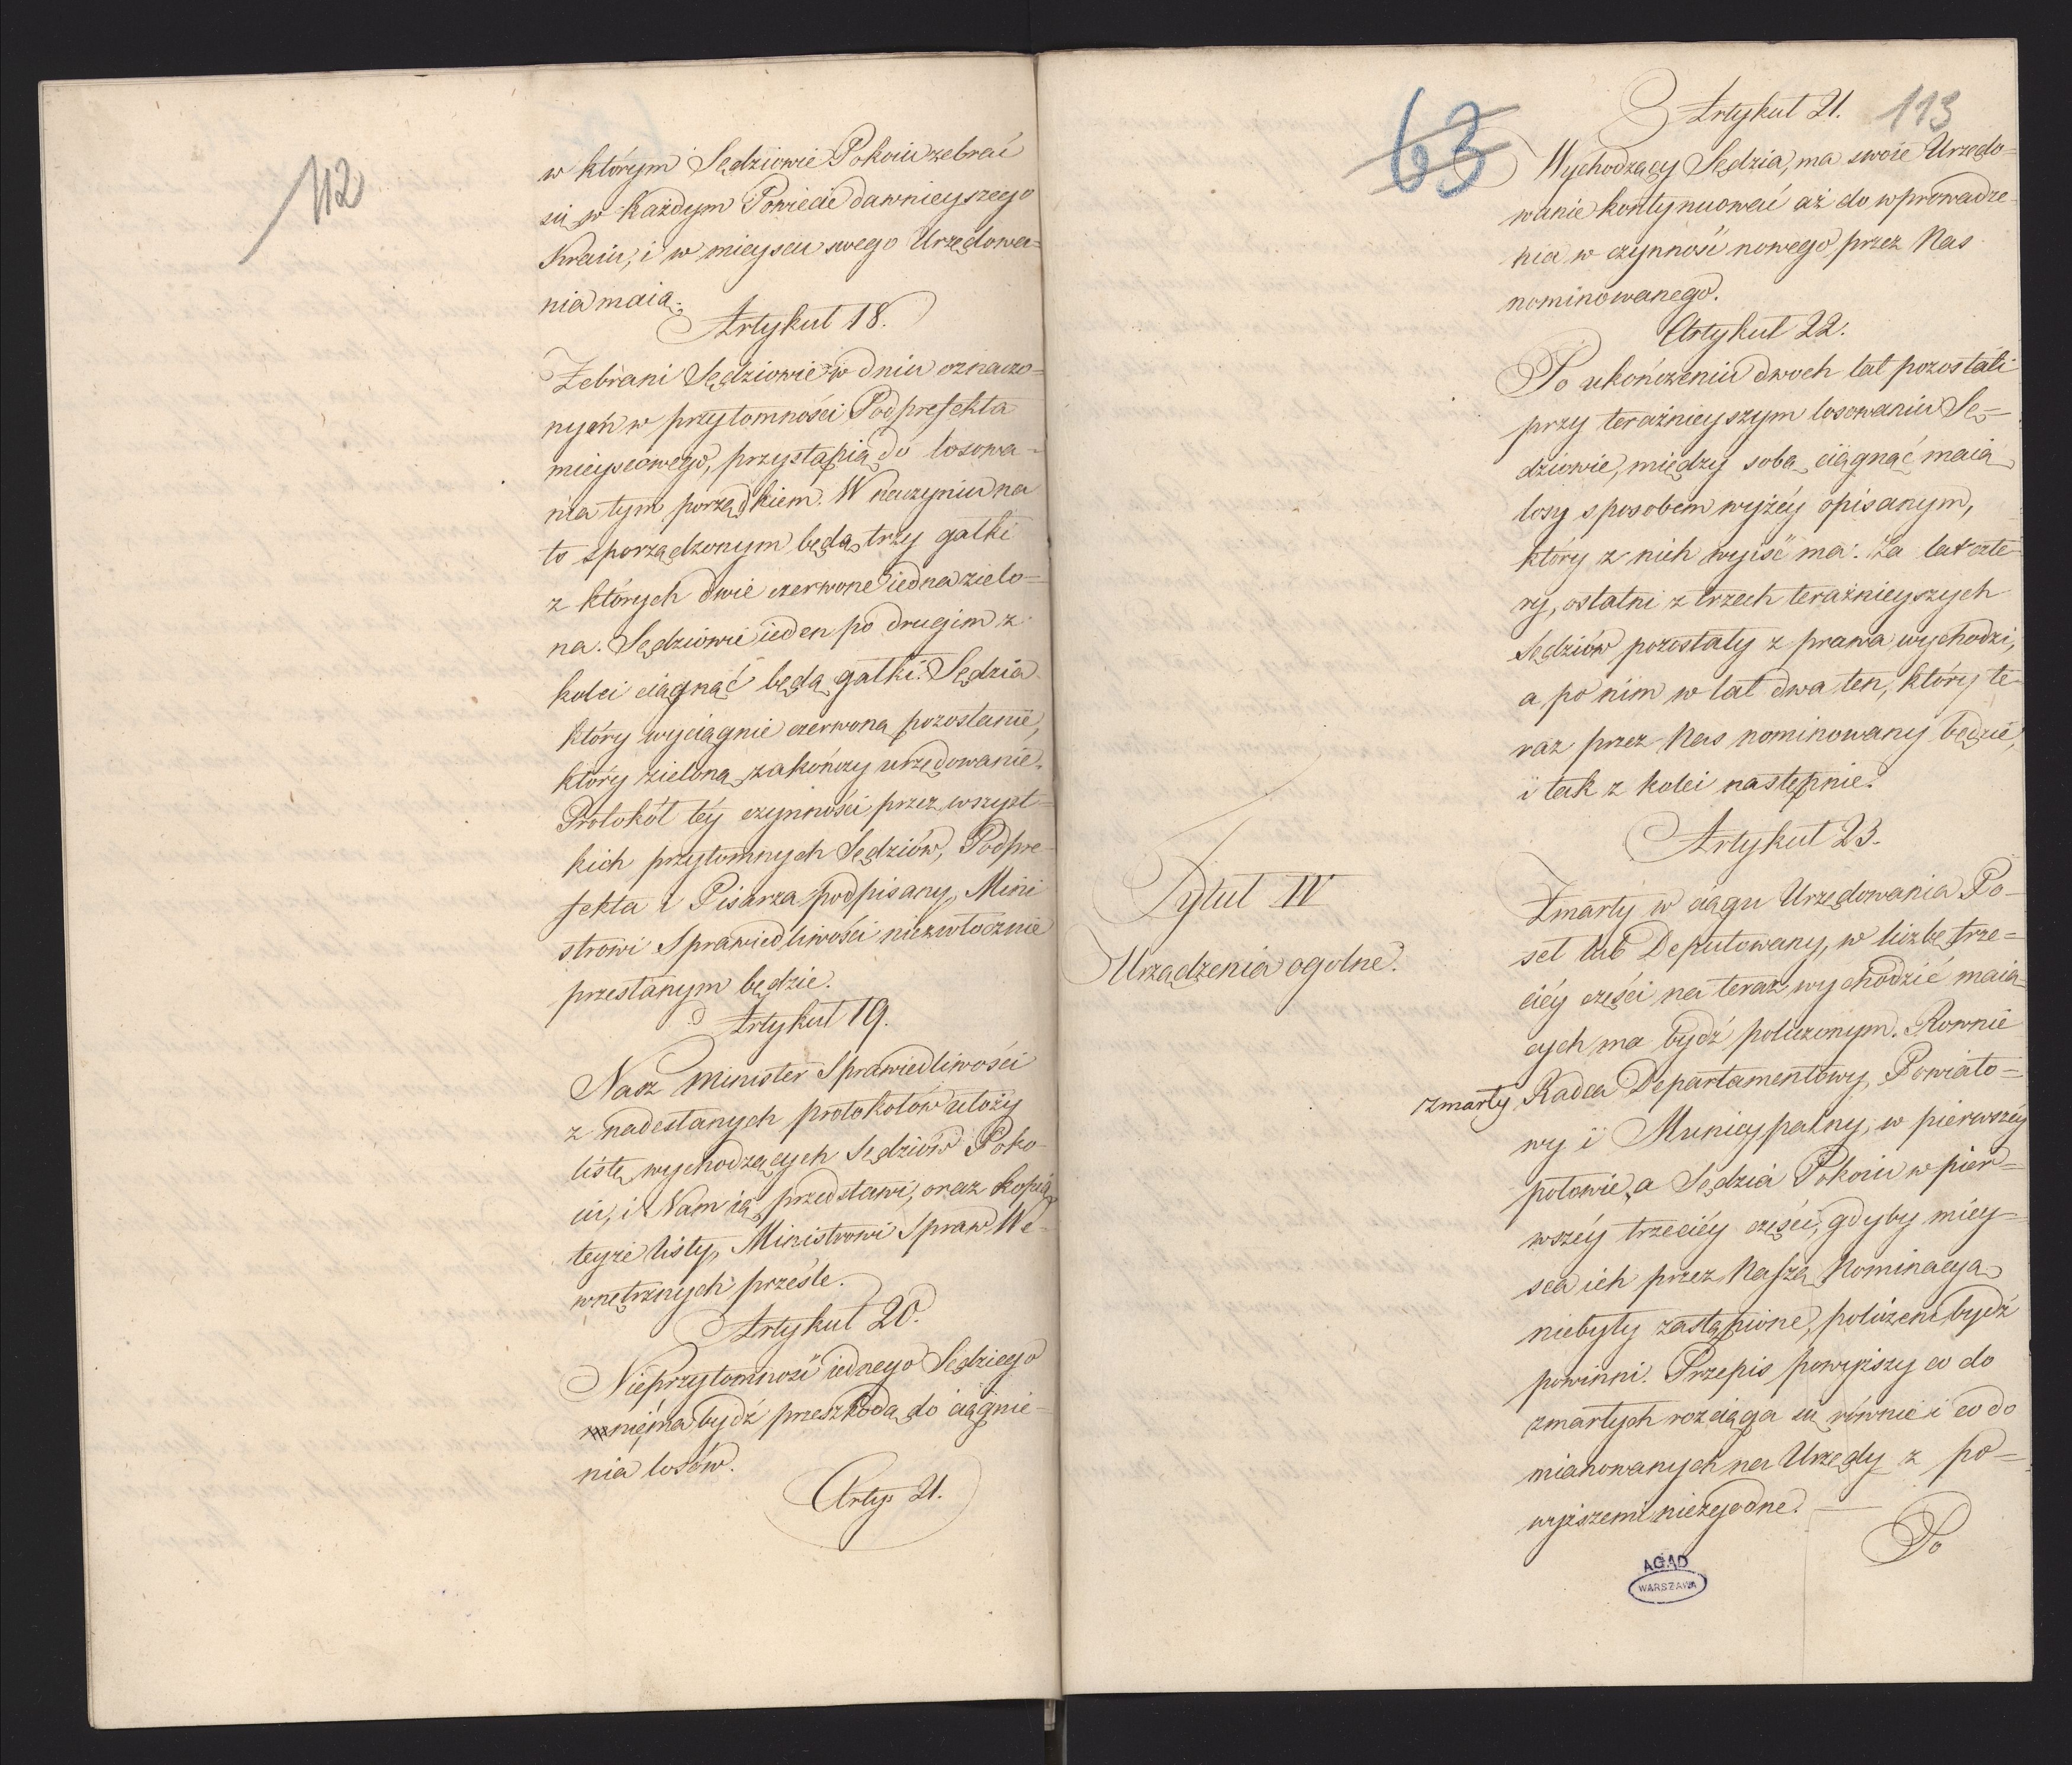 112
w którym Sędziowie Pokoiu zebrać
się w każdym Powiecie dawnieyszego
Kraiu, i w mieyscu swego Urzędowa=
nia maią.
Artykuł 18.
Zebrani Sędziowie w dniu oznaczo=
nym w przytomności Podprefekta
mieyscowego, przystąpią do losowa-
nia tym porządkiem. W naczyniu na
to sporządzonym będą trzy gałki
z których dwie czerwone iedna zielo=
na. Sędziowie ieden po drugim z
kolei ciągnąć będą gałki. Sędzia
który wyciągnie czerwoną pozostanie,
który zieloną zakończy urzędowanie.
Protokół téy czynności przez wszyst=
kich przytomnych Sędziów, Podpre-
fekta i Pisarza podpisany, Mini
strowi Sprawiedliwości niezwłocznie
przesłanym będzie.
Artykuł 19.
Nasz Minister Sprawiedliwości
z nadesłanych protokołów ułoży
listę wychodzących Sędziów Poko-
iu, i Nam ią przedstawi, oraz kopią
teyże listy, Ministrowi Spraw We-
wnętrznych prześle.
Artykuł 20.
Nieprzytomność iednego Sędziego
nie ma bydź przeszkodą do ciągnie-
nia losów.
Arty. 21.
63
113
Artykuł 21.
Wychodzący Sędzia, ma swoie Urzędo=
wanie kontynuować aż do wprowadze-
nia w czynność nowego przez Nas
nominowanego.
Artykuł 22.
Po ukończeniu dwoch lat pozostali
przy teraźnieyszym losowaniu Sę=
dziowie, między sobą ciągnąć maią
losy sposobem wyżéy opisanym,
który z nich wyiść ma. Za lat czte-
ry, ostatni z trzech teraźnieyszych
Sędziów pozostały z prawa wychodzi,
a po nim w lat dwa ten, który te-
raz przez Nas nominowany będzie,
i tak z kolei następnie.
Artykuł 23.
Tytuł IV
Urządzenia ogolne.
Zmarły w ciągu Urzędowania Po-
seł lub Deputowany, w liczbę trze=
ciéy części na teraz wychodzić maią-
cych ma bydź policzonym. Rownie
zmarły Radca Departamentowy, Powiato=
wy i Municypalny, w pierwszéy
połowie, a Sędzia Pokoiu w pier=
wszéy trzeciéy części, gdyby miey=
sca ich przez Naszą Nominacyą
niebyły zastąpione, policzeni bydź
powinni. Przepis powyższy co do
zmarłych rozciąga się równie i co do
mianowanych na Urzędy z po=
wyższemi niezgodne.
Po
AGAD
WARSZAWA